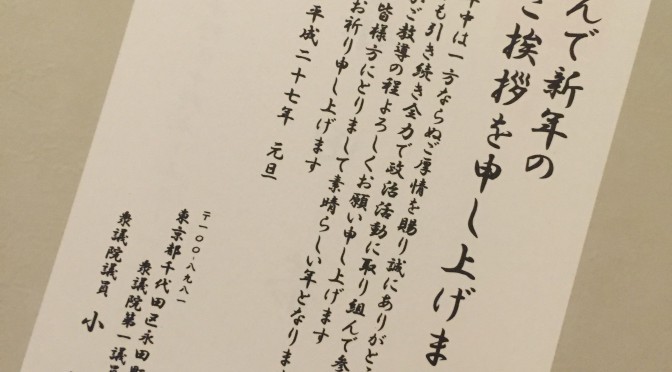 んで新年の
ご挨拶を申し上げま
年中は一方ならぬご厚情を賜り誠にありがとう
も引き続き全力で政治活動に取り組んで参
ご教導の程よろしくお願い申し上げます
皆様方にとりまして素晴らしい年となりま
お祈り申し上げます
平成二十七年 元旦
〒一〇〇-八九八一
東京都千代田区永田町
衆議院第一議員
衆議院議員 小